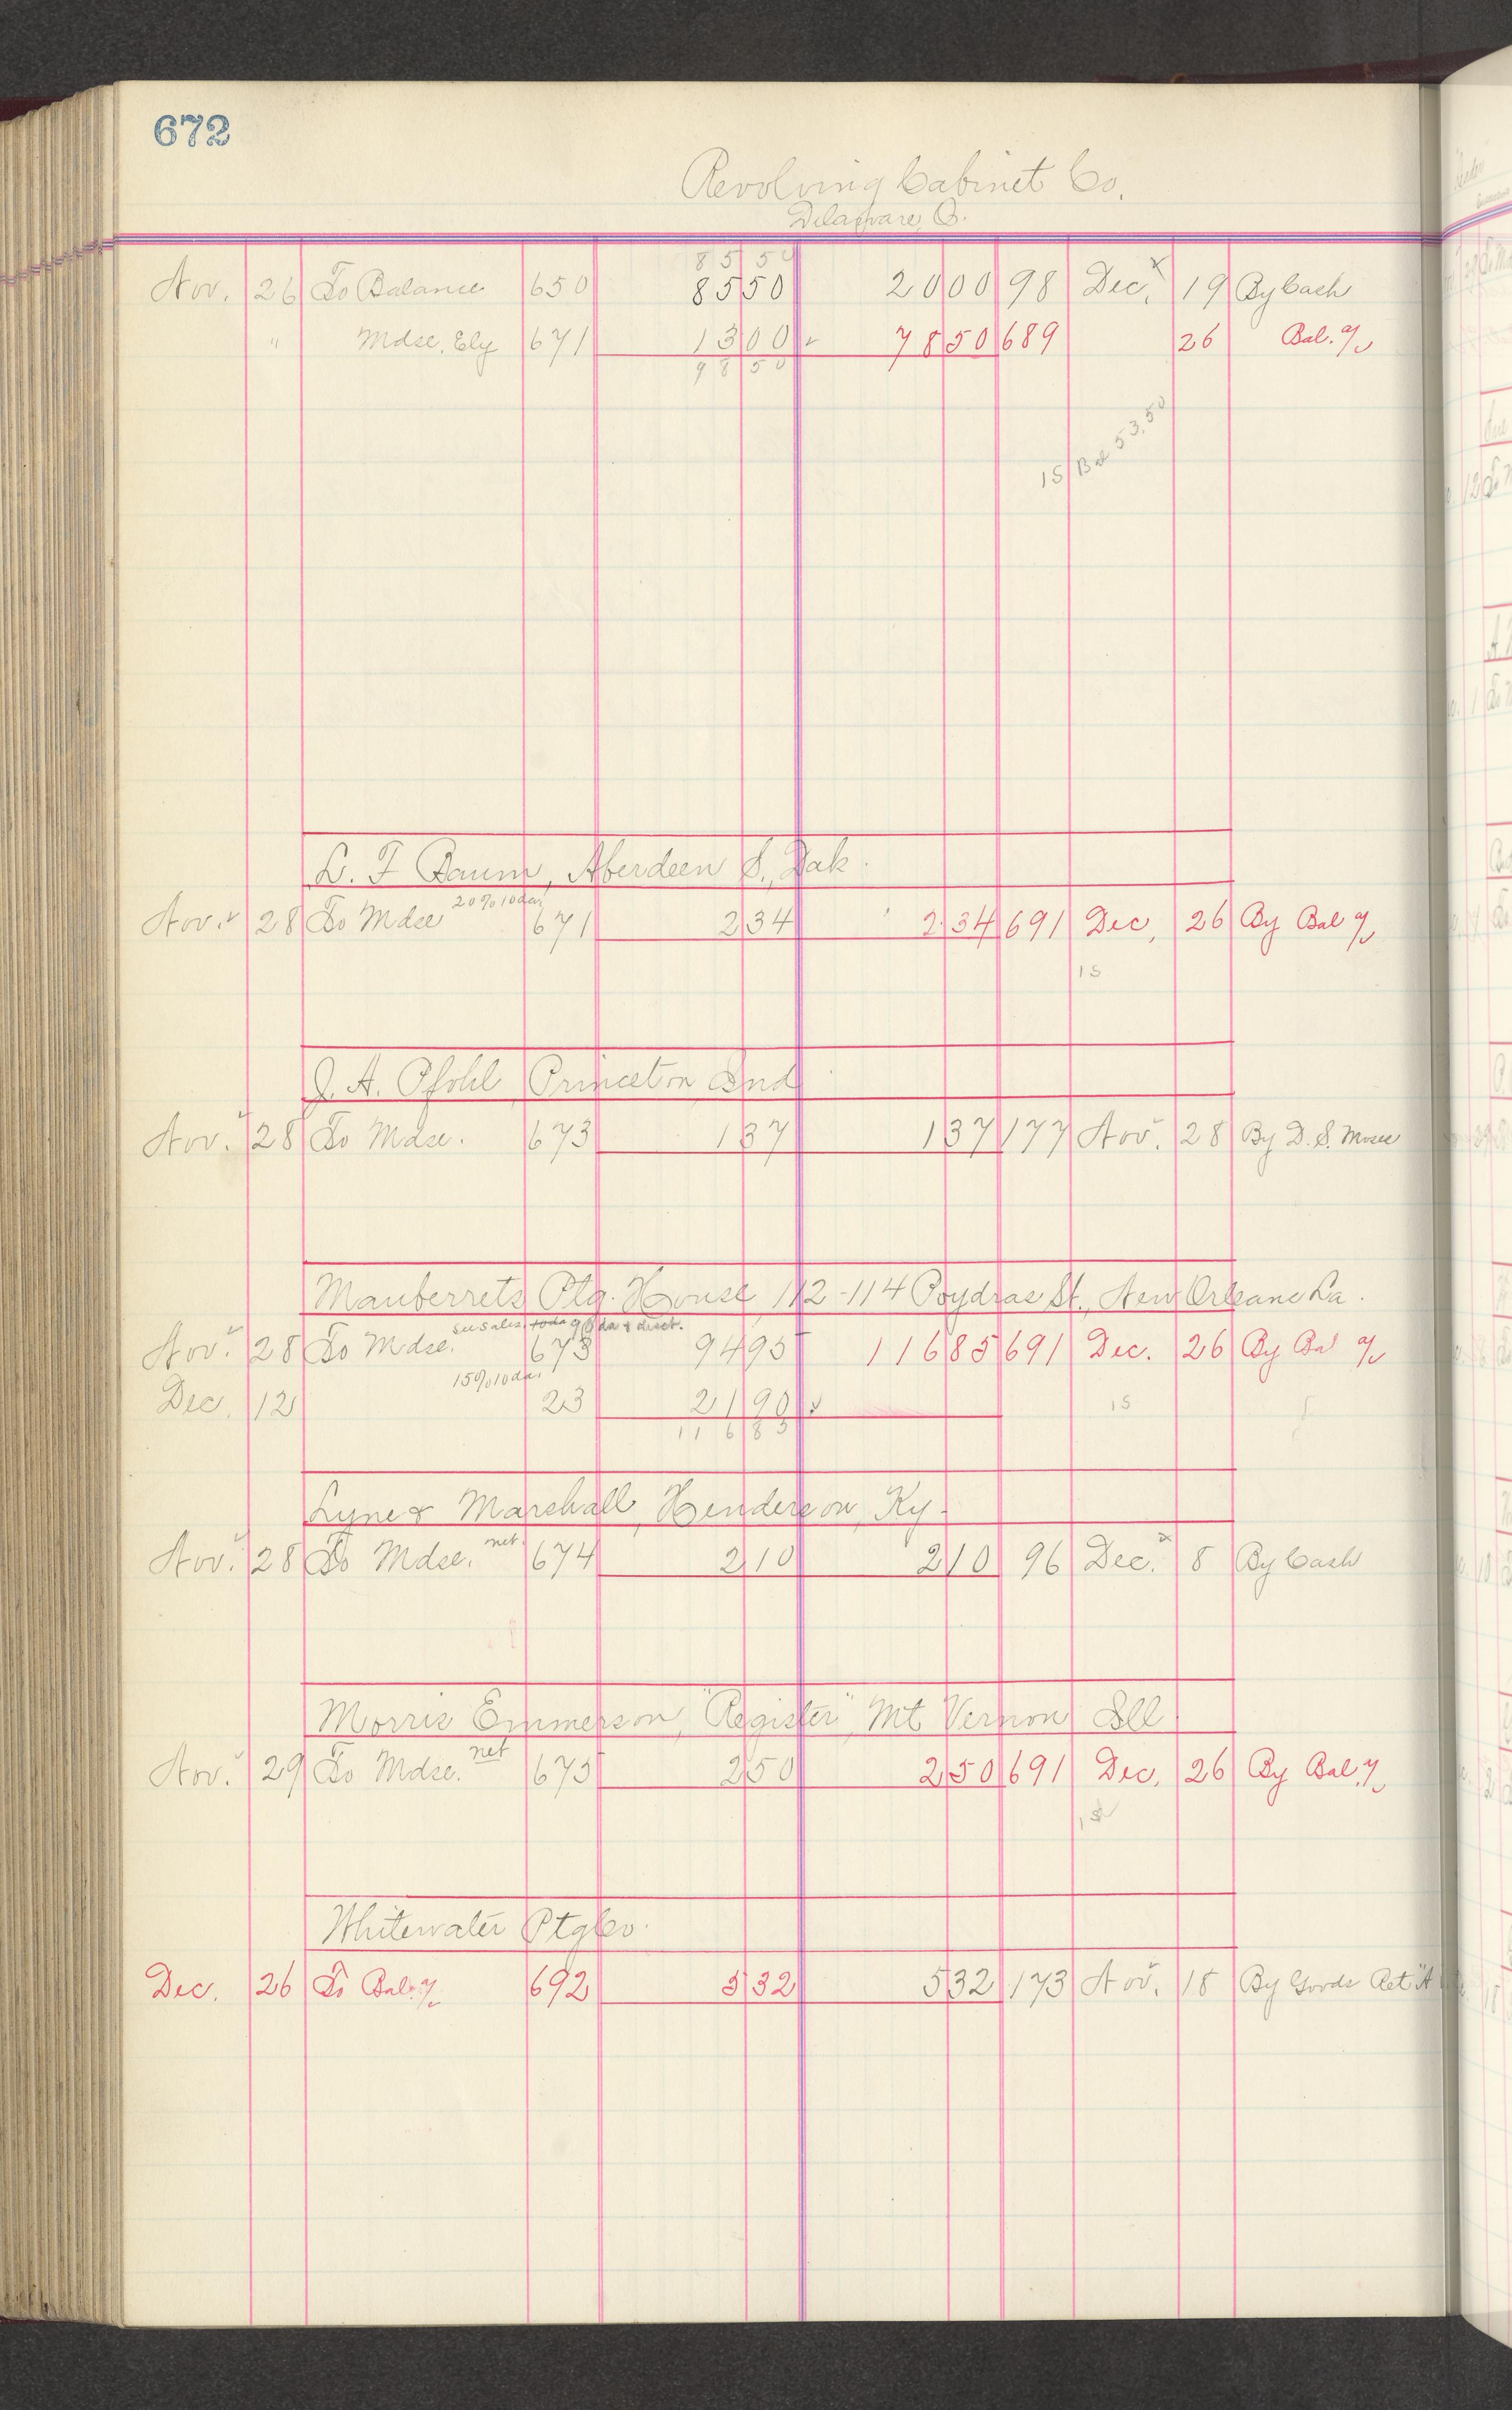 672
Revolving Cabinet Co.
Delaware, O.
85 50
Nov. 26 To Balance 650 85 50 20 00 98 Dec. 19 By Cash
" Mdse. Ely 671 13 00 78 50 689 26 Bal. 
98 50
15 Bal 53.50
L. F Baum, Aberdeen S. Dak.
20% 10 da.
Nov. 28 To Mdse 671 2 34 2 34 691 Dec, 26 By Bal
15
J. A. Pfohl Princeton Ind
Nov. 28 To Mdse. 673 1 37 1 37 177 Nov. 28 By D. S. Mose
Mauberrets Ptg. House 112-114 Poydras St., New Orleans La.
see sales 10 da 90 da & disct.
Nov. 28 To Mdse. 673 94 95 116 85 691 Dec. 26 By Bal
15% 10 da.
Dec. 12 23 21 90
15
116 85
Lyne & Marshall, Henderson, Ky.
Nov. 28 To Mdse. net. 674 2 10 2 10 96 Dec. 8 By Cash
Morris Emmerson, "Register", Mt. Vernon Ill
Nov. 29 To Mdse. net 675 2 50 2 50 691 Dec. 26 By Bal.
15
Whitewater Ptg Co.
Dec. 26 To Bal. 692 5 32 5 32 173 Nov. 18 By Goods Ret "A